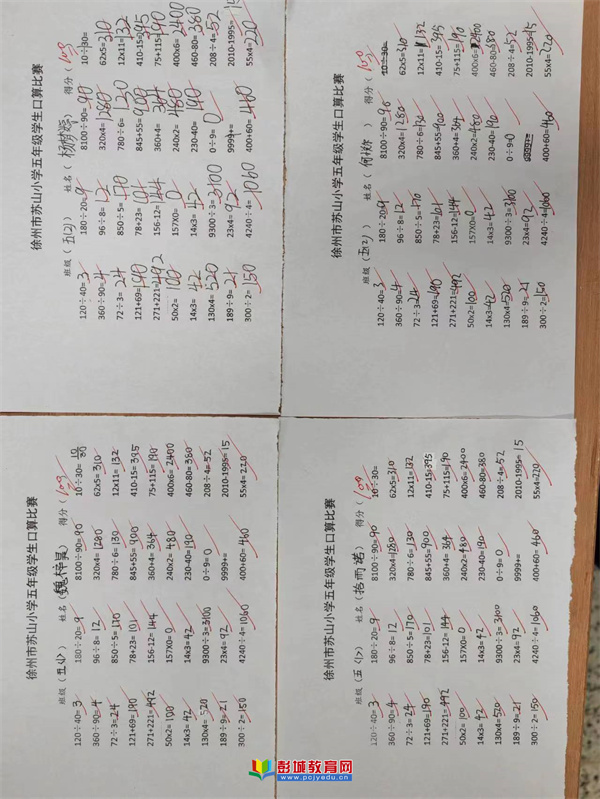 徐州市苏山小学五年级学生口算比赛
班级（五(2)） 姓名（） 得分（100）
120÷40=3 180÷20=9 8100÷90=90 10÷30=
360÷90=4 96÷8=12 320x4=1280 62x5=310
72÷3=24 850÷5=170 780÷6=120 12x11=132
121+69=190 78+23=101 845+55=900 410-15=395
271+221=492 156-12=144 360+4=364 75+115=190
50x2=100 157X0=0 240x2=480 400x6=2400
14x3=42 14x3=42 230-40=190 460-80=380
130x4=520 9300÷3=3100 0÷9=0 208÷4=52
189÷9=21 23x4=92 9999+= 2010-1995=15
300÷2=150 4240÷4=1060 400+60=460 55x4=220
徐州市苏山小学五年级学生口算比赛
班级（五(2)） 姓名（） 得分（100）
120÷40=3 180÷20=9 8100÷90=90 10÷30=
360÷90=4 96÷8=12 320x4=1280 62x5=310
72÷3=24 850÷5=170 780÷6=130 12x11=132
121+69=190 78+23=101 845+55=900 410-15=395
271+221=492 156-12=144 360+4=364 75+115=190
50x2=100 157X0=0 240x2=480 400x6=2400
14x3=42 14x3=42 230-40=190 460-80=380
130x4=520 9300÷3=3100 0÷9=0 208÷4=52
189÷9=21 23x4=92 2010-1995=15
300÷2=150 4240÷4=1060 400+60=460 55x4=220
徐州市苏山小学五年级学生口算比赛
班级（） 姓名（魏梓昊） 得分（100）
120÷40=3 180÷20=9 8100÷90=90 10÷30=10/30
360÷90=4 96÷8=12 320x4=1280 62x5=310
72÷3=24 850÷5=170 780÷6=130 12x11=132
121+69=190 78+23=101 845+55=900 410-15=395
271+221=492 156-12=144 360+4=364 75+115=190
50x2=100 157X0=0 240x2=480 400x6=2400
14x3=42 14x3=42 230-40=190 460-80=380
130x4=520 9300÷3=3100 0÷9=0 208÷4=52
189÷9=21 23x4=92 9999+= 2010-1995=15
300÷2=150 4240÷4=1060 400+60=460 55x4=220
徐州市苏山小学五年级学生口算比赛
班级（） 姓名（） 得分（100）
120÷40=3 180÷20=9 8100÷90=90 10÷30=
360÷90=4 96÷8=12 320x4=1280 62x5=310
72÷3=24 850÷5=170 780÷6=130 12x11=132
121+69=190 78+23=101 845+55=900 410-15=395
271+221=492 156-12=144 360+4=364 75+115=190
50x2=100 157X0=0 240x2=480 400x6=2400
14x3=42 14x3=42 230-40=190 460-80=380
130x4=520 9300÷3=3100 0÷9=0 208÷4=52
189÷9=21 23x4=92 9999+= 2010-1995=15
300÷2=150 4240÷4=1060 400+60=460 55x4=220
彭城教育网
www.pcjyedu.cn